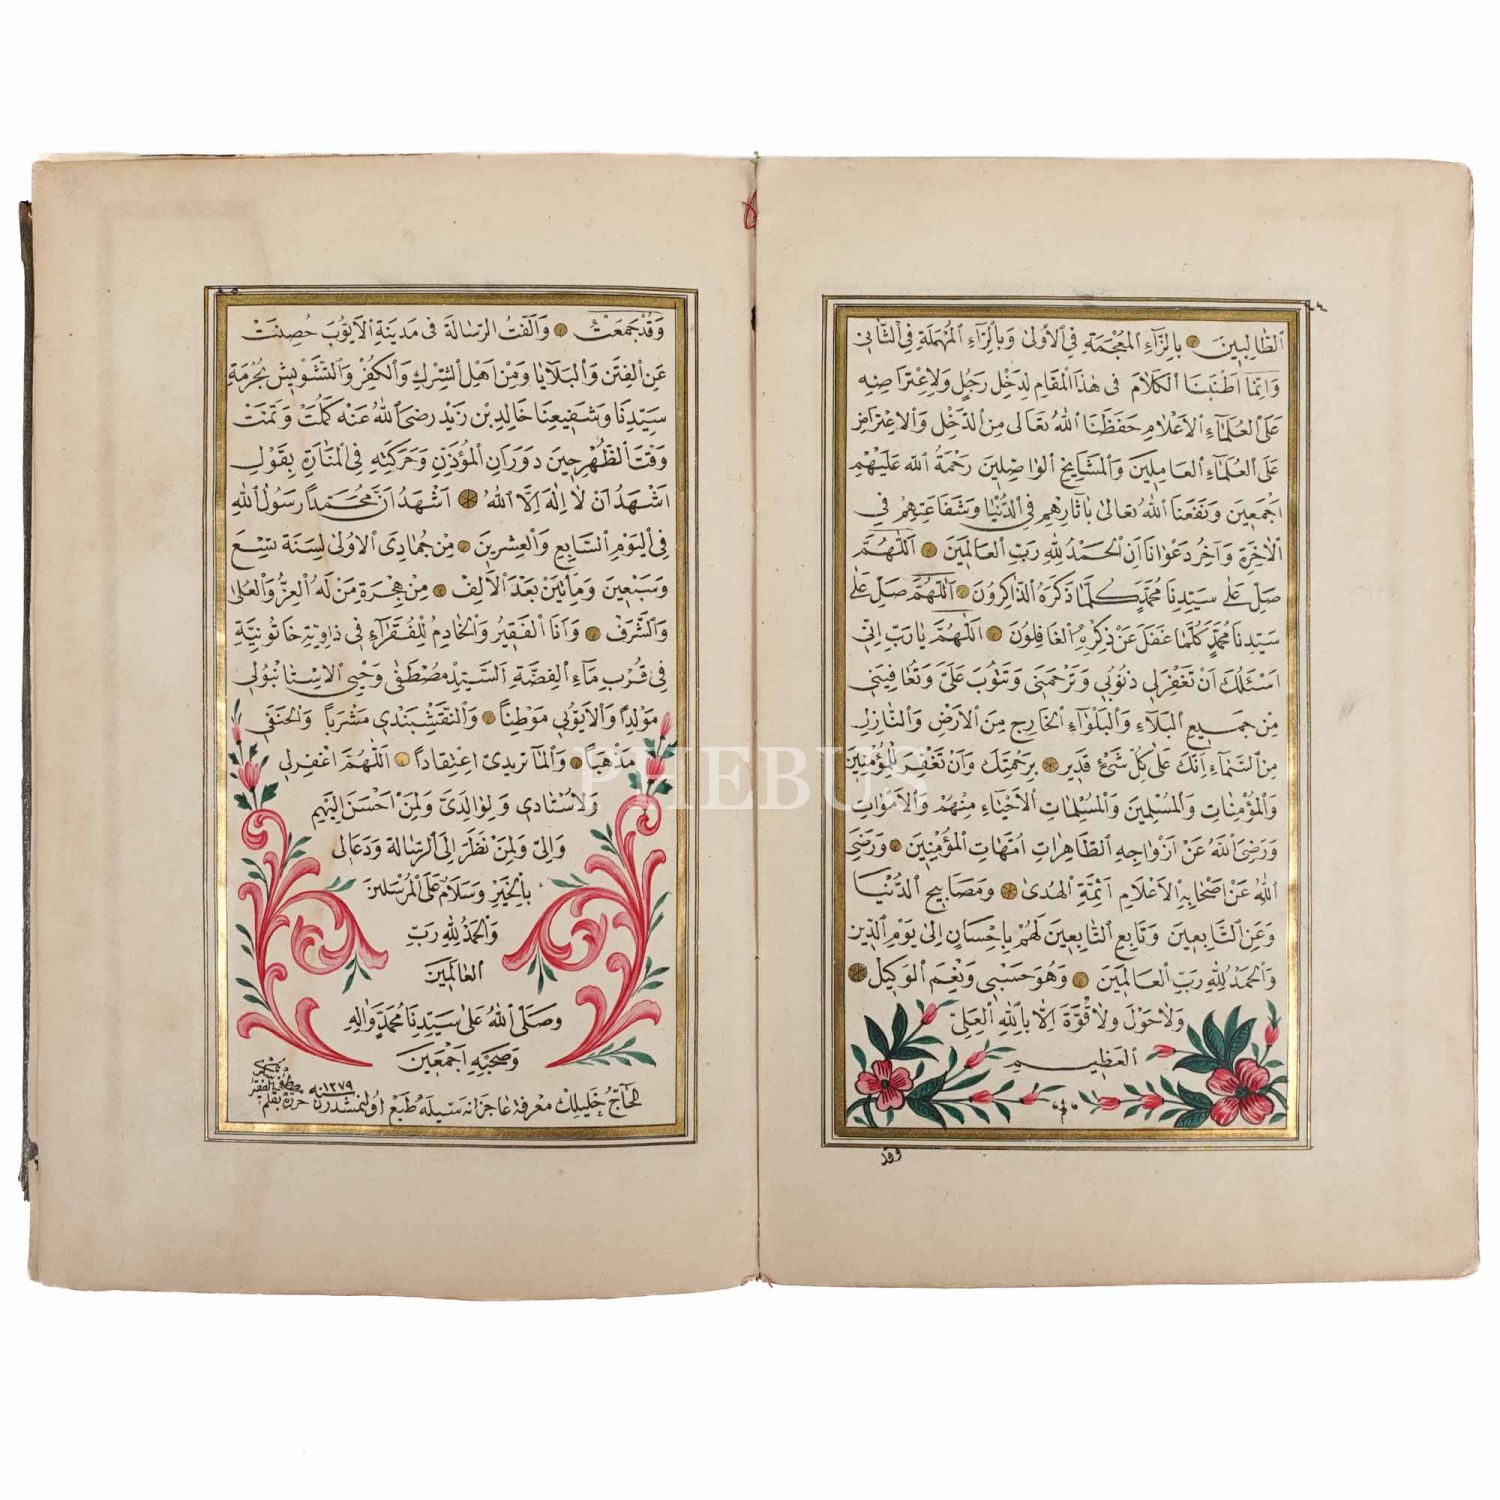 الطالبين بالزاء المعجمة في الأولى وبالراء المهملة في الثاني
وانما اطنبنا الكلام في هذا المقام لدخل رجل ولاعتراضه
على العلماء الأعلام حفظنا الله تعالى من الدخل والاعتراض
على العلماء العاملين والمشايخ الواصلين رحمة الله عليهم
اجمعين ونفعنا الله تعالى بآثارهم في الدنيا وشفاعتهم في
الآخرة وآخر دعوانا ان الحمد لله رب العالمين اللهم
صل على سيدنا محمد كلما ذكره الذاكرون اللهم صل على
سيدنا محمد كلما غفل عن ذكره الغافلون اللهم يا رب اني
اسئلك ان تغفر لي ذنوبي وترحمني وتتوب علي وتعافيني
من جميع البلاء والبلواء الخارج من الأرض والنازل
من السماء انك على كل شئ قدير برحمتك وان تغفر للمؤمنين
والمؤمنات والمسلمين والمسلمات الأحياء منهم والأموات
ورضى الله عن ازواجه الطاهرات امهات المؤمنين ورضى
الله عن اصحابه الأعلام ائمة الهدى ومصابيح الدنيا
وعن التابعين وتابع التابعين لهم باحسان الى يوم الدين
والحمد لله رب العالمين وهو حسبي ونعم الوكيل
ولا حول ولا قوة الا بالله العلي
العظيم
م
وقد
وقد جمعت والفت الرسالة في مدينة الايوب حصنت
عن الفتن والبلايا ومن اهل الشرك والكفر والتشويش بحرمة
سيدنا وشفيعنا خالد بن زيد رضى الله عنه كملت وتمت
وقت الظهر حين دوران المؤذن وحركته في المنارة بقول
اشهد ان لا اله الا الله اشهد ان محمدا رسول الله
في اليوم السابع والعشرين من جمادى الأولى لسنة تسع
وسبعين ومأتين بعد الألف من هجرة من له العز والعلى
والشرف وانا الفقير والخادم للفقراء في زاوية خاتونية
في قرب ماء الفضة السيد مصطفى وحيي الاستانبولي
مولدا والايوبي موطنا والنقشبندي مشربا والحنفي
مذهبا والماتريدي اعتقادا اللهم اغفر لي
ولاستادي ولوالدي ولمن احسن اليهم
والي ولمن نظر الى الرسالة ودعا لي
بالخير وسلام على المرسلين
والحمد لله رب
العالمين
وصلى الله على سيدنا محمد وآله
وصحبه اجمعين
الحاج خليلك معرفة عاجزانه سيله طبع اولنمشدر سنه ١٢٧٩
حرره بقلم
PHEBUS